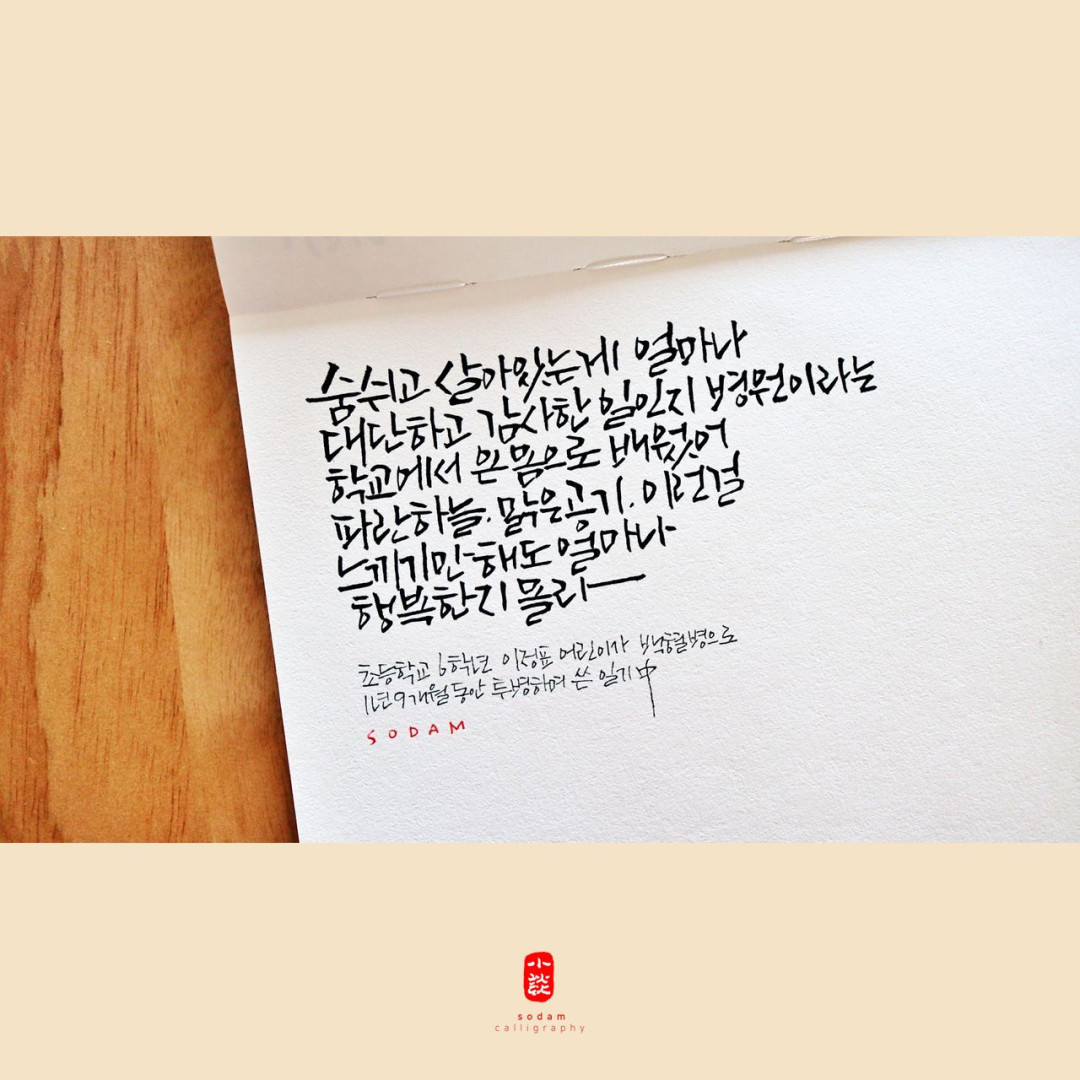 숨쉬고 살아있는게 얼마나
대단하고 감사한 일인지 병원이라는
학교에서 온 몸으로 배웠어
파란하늘. 맑은공기. 이런걸
느끼기만 해도 얼마나
행복한지 몰라
초등학교 6학년 이정표 어린이가 백혈병으로
1년 9개월동안 투병하며 쓴 일기 中
SODAM
小談
sodam
calligraphy